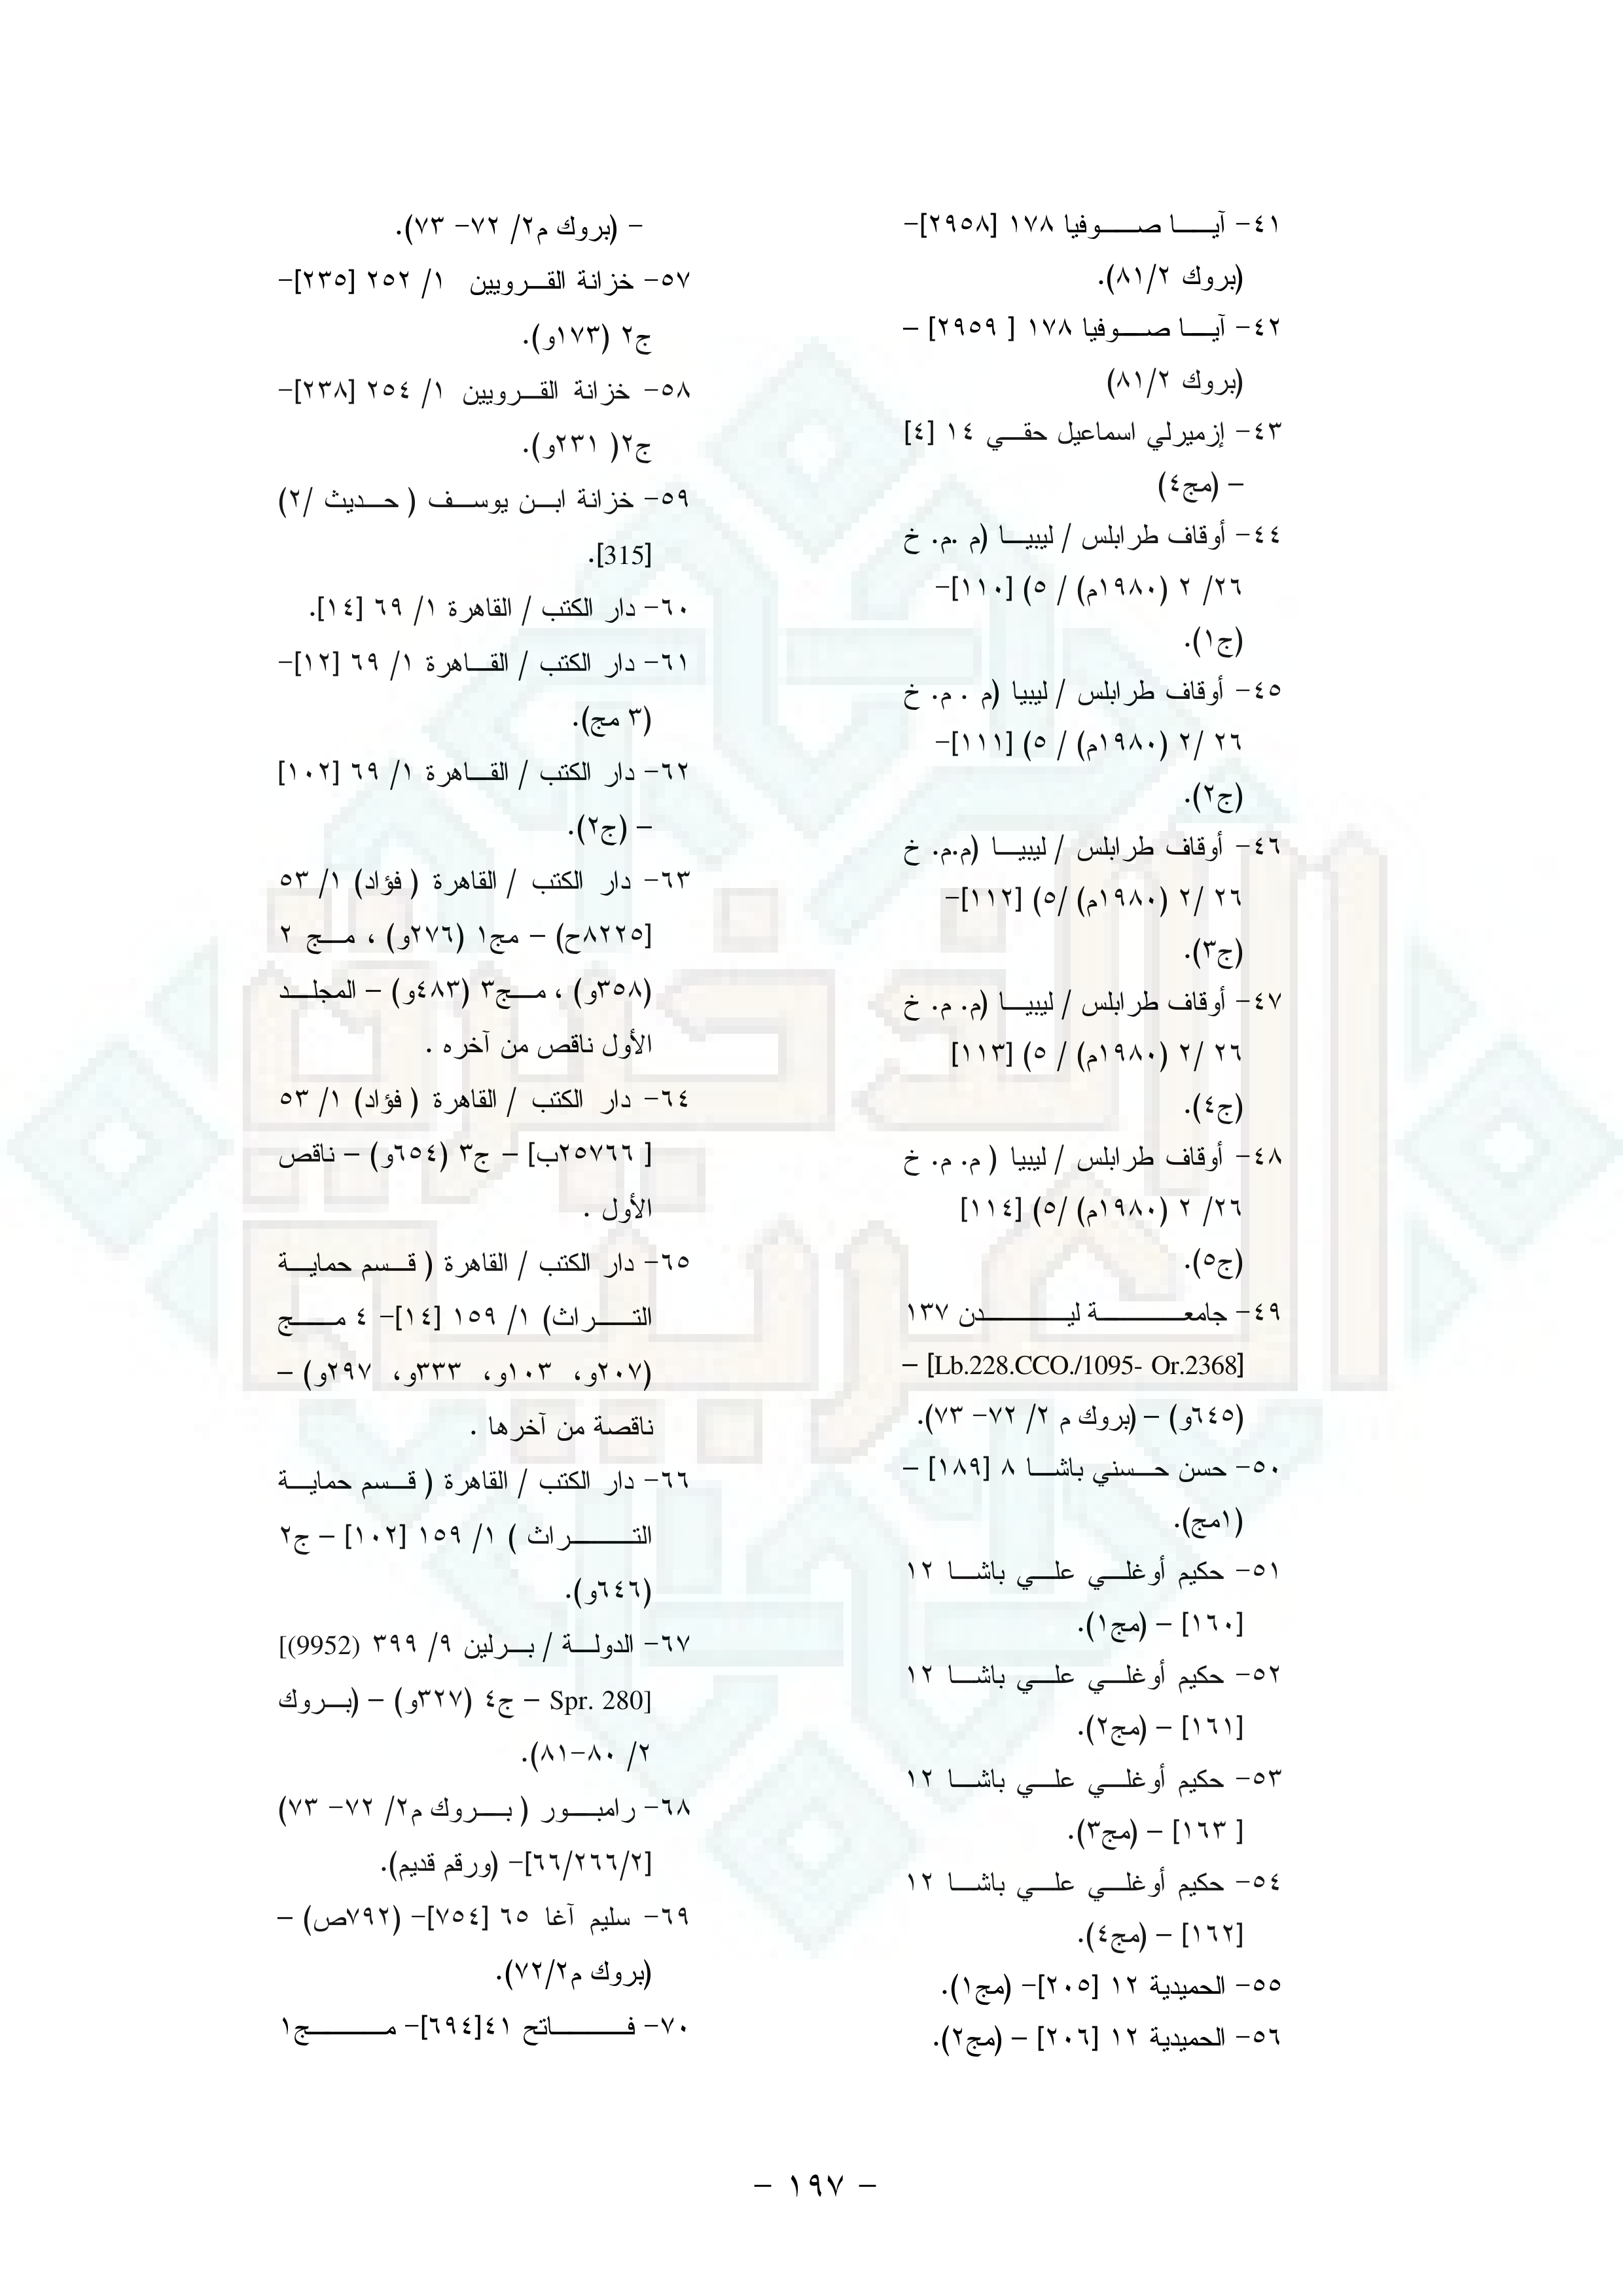 ٤١- آيـــا صـــوفيا ١٧٨ [٢٩٥٨]-
(بروك ٨١/٢).
٤٢- آيـــا صـــوفيا ١٧٨ [ ٢٩٥٩] –
(بروك ٨١/٢)
٤٣- إزميرلي اسماعيل حقـــي ١٤ [٤]
– (مج٤)
٤٤- أوقاف طرابلس / ليبيـــا (م .م. خ
٢٦/ ٢ (١٩٨٠م) / ٥) [١١٠]-
(ج١).
٤٥- أوقاف طرابلس / ليبيا (م . م. خ
٢٦ /٢ (١٩٨٠م) / ٥) [١١١]-
(ج٢).
٤٦- أوقاف طرابلس / ليبيـــا (م.م. خ
٢٦ /٢ (١٩٨٠م) /٥) [١١٢]-
(ج٣).
٤٧- أوقاف طرابلس / ليبيـــا (م. م. خ
٢٦ /٢ (١٩٨٠م) / ٥) [١١٣]
(ج٤).
٤٨- أوقاف طرابلس / ليبيا ( م. م. خ
٢٦/ ٢ (١٩٨٠م) /٥) [١١٤]
(ج٥).
٤٩- جامعـــــــة ليـــــــدن ١٣٧
[Lb.228.CCO./1095- Or.2368] –
(٦٤٥و) – (بروك م ٢/ ٧٢- ٧٣).
٥٠- حسن حـــسني باشـــا ٨ [١٨٩] –
(١مج).
٥١- حكيم أوغلـــي علـــي باشـــا ١٢
[١٦٠] – (مج١).
٥٢- حكيم أوغلـــي علـــي باشـــا ١٢
[١٦١] – (مج٢).
٥٣- حكيم أوغلـــي علـــي باشـــا ١٢
[ ١٦٣] – (مج٣).
٥٤- حكيم أوغلـــي علـــي باشـــا ١٢
[١٦٢] – (مج٤).
٥٥- الحميدية ١٢ [٢٠٥]- (مج١).
٥٦- الحميدية ١٢ [٢٠٦] – (مج٢).
- (بروك م٢/ ٧٢- ٧٣).
٥٧- خزانة القـــرويين ١/ ٢٥٢ [٢٣٥]-
ج٢ (١٧٣و).
٥٨- خزانة القـــرويين ١/ ٢٥٤ [٢٣٨]-
ج٢( ٢٣١و).
٥٩- خزانة ابـــن يوســـف ( حـــديث /٢)
[315].
٦٠- دار الكتب / القاهرة ١/ ٦٩ [١٤].
٦١- دار الكتب / القـــاهرة ١/ ٦٩ [١٢]-
(٣ مج).
٦٢- دار الكتب / القـــاهرة ١/ ٦٩ [١٠٢]
– (ج٢).
٦٣- دار الكتب / القاهرة ( فؤاد) ١/ ٥٣
[٨٢٢٥ح) – مج١ (٢٧٦و) ، مـــج ٢
(٣٥٨و) ، مـــج٣ (٤٨٣و) – المجلـــد
الأول ناقص من آخره .
٦٤- دار الكتب / القاهرة ( فؤاد) ١/ ٥٣
[ ٢٥٧٦٦ب] – ج٣ (٦٥٤و) – ناقص
الأول .
٦٥- دار الكتب / القاهرة ( قـــسم حمايـــة
التـــراث) ١/ ١٥٩ [١٤]- ٤ مـــج
(٢٠٧و، ١٠٣و، ٣٣٣و، ٢٩٧و) –
ناقصة من آخرها .
٦٦- دار الكتب / القاهرة ( قـــسم حمايـــة
التـــــراث ) ١/ ١٥٩ [١٠٢] – ج٢
(٦٤٦و).
٦٧- الدولـــة / بـــرلين ٩/ ٣٩٩ (9952)]
Spr. 280] – ج٤ (٣٢٧و) – (بـــروك
٢/ ٨٠-٨١).
٦٨- رامبـــور ( بـــروك م٢/ ٧٢- ٧٣)
[٦٦/٢٦٦/٢]- (ورقم قديم).
٦٩- سليم آغا ٦٥ [٧٥٤]- (٧٩٢ص) –
(بروك م٧٢/٢).
٧٠- فـــــاتح ٤١[٦٩٤]- مـــــج١
- ١٩٧ -